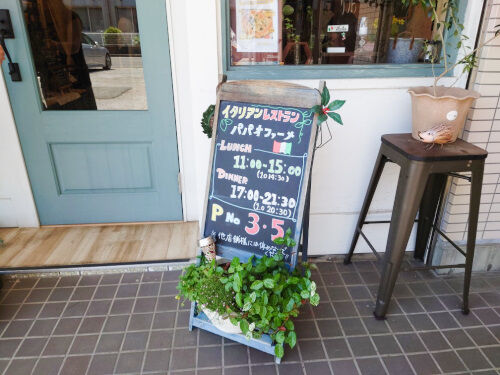 イタリアンレストラン
パパオファーメ
LUNCH
11:00-15:00
(LO 14:30)
DINNER
17:00-21:30
(LO 20:30)
P No 3.5